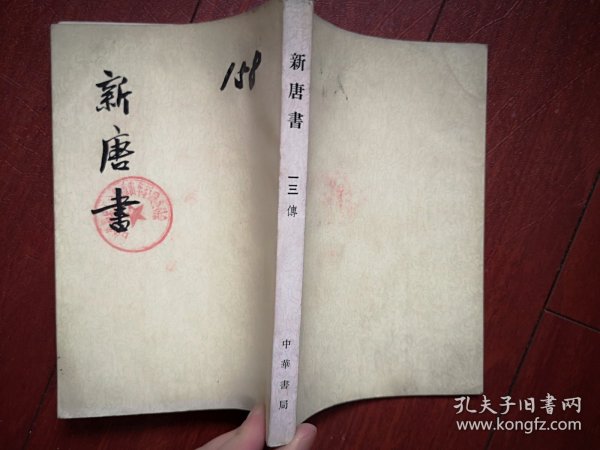 新唐書
158
新唐書
一三 傳
中華書局
孔夫子旧書网
www.kongfz.com